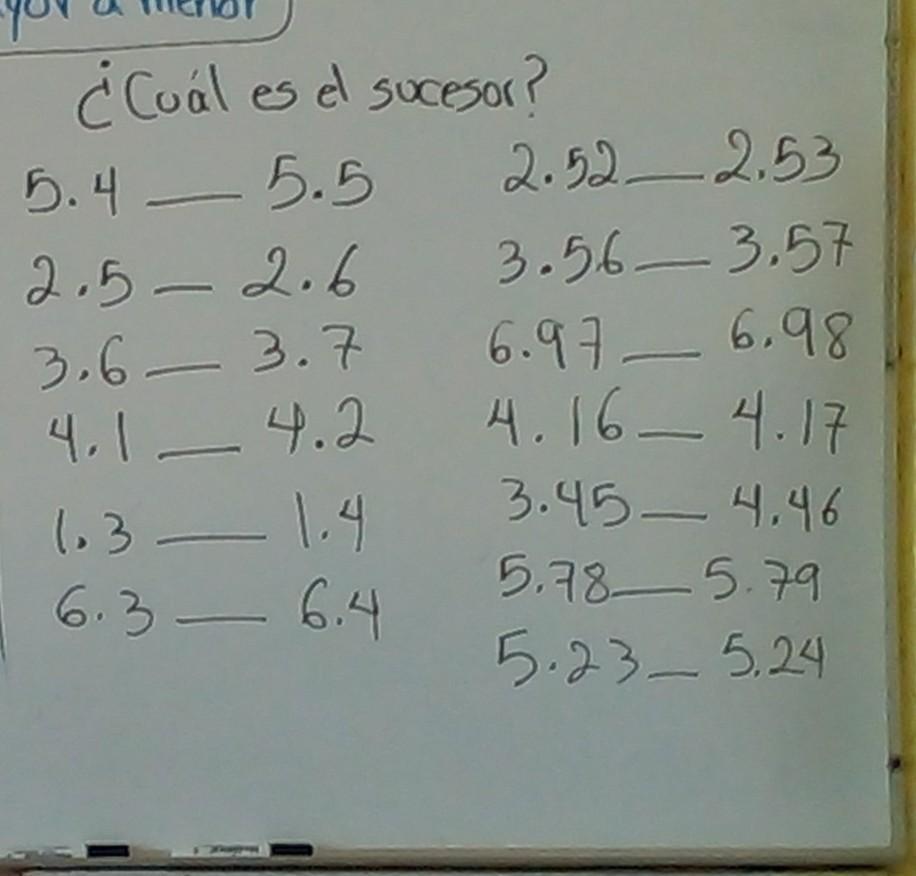 yor a menor
¿Cuál es el sucesor?
5.4 — 5.5
2.5 — 2.6
3.6 — 3.7
4.1 — 4.2
1.3 — 1.4
6.3 — 6.4
2.52 — 2.53
3.56 — 3.57
6.97 — 6.98
4.16 — 4.17
3.45 — 4.46
5.78 — 5.79
5.23 — 5.24